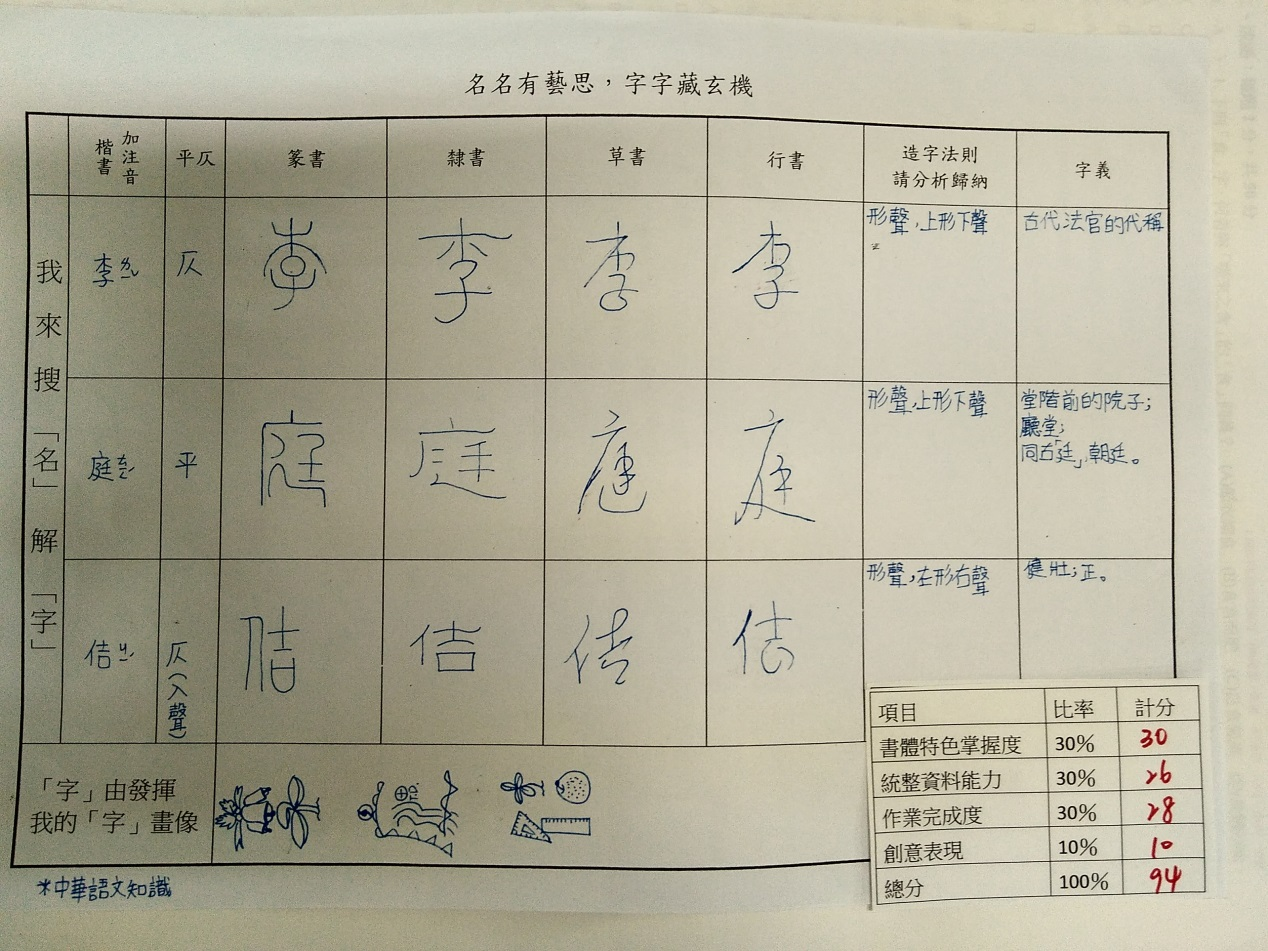 名名有藝思，字字藏玄機
楷書 加注音
平仄
篆書
隸書
草書
行書
造字法則
請分析歸納
字義
我來搜「名」解「字」
李 ㄌㄧˇ
仄
李
李
李
李
形聲，上形下聲
古代法官的代稱
庭 ㄊㄧㄥˊ
平
庭
庭
庭
庭
形聲，上形下聲
堂階前的院子；
廳堂；
同古「廷」，朝廷。
佶 ㄐㄧˊ
仄(入聲)
佶
佶
佶
佶
形聲，左形右聲
健壯；正。
「字」由發揮
我的「字」畫像
*中華語文知識
項目 比率 計分
書體特色掌握度 30% 30
統整資料能力 30% 26
作業完成度 30% 28
創意表現 10% 10
總分 100% 94